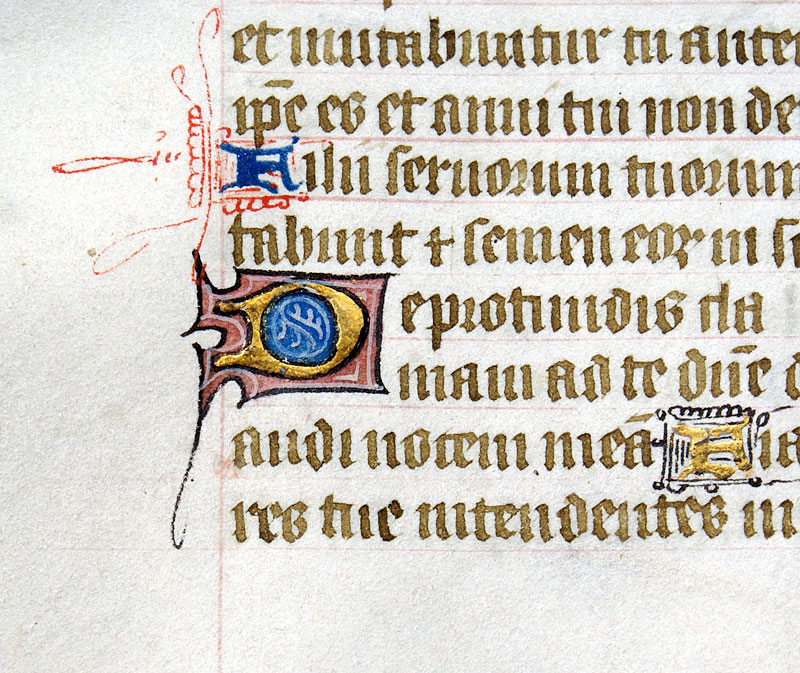 et mutabuntur tu autem
ip̄e es et anni tui non de
Filii seruorum tuorum
tabunt ⁊ semen eoꝝ in se
De profundis cla
maui ad te dn̄e
audi uocem meā Fia
res tue intendentes in